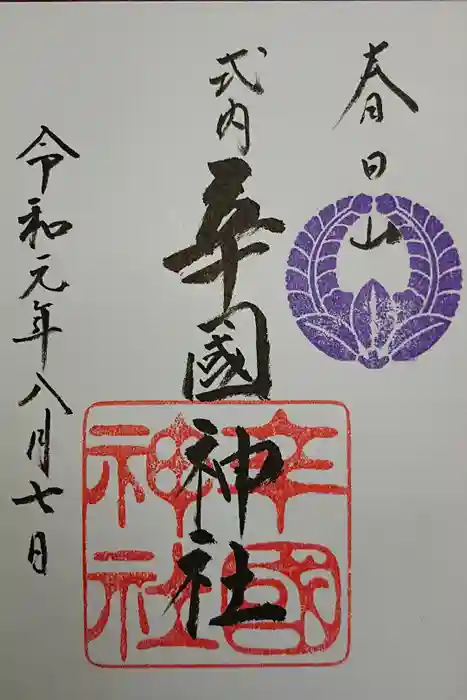 春日山
式内
辛國神社
辛國
神社
令和元年八月七日